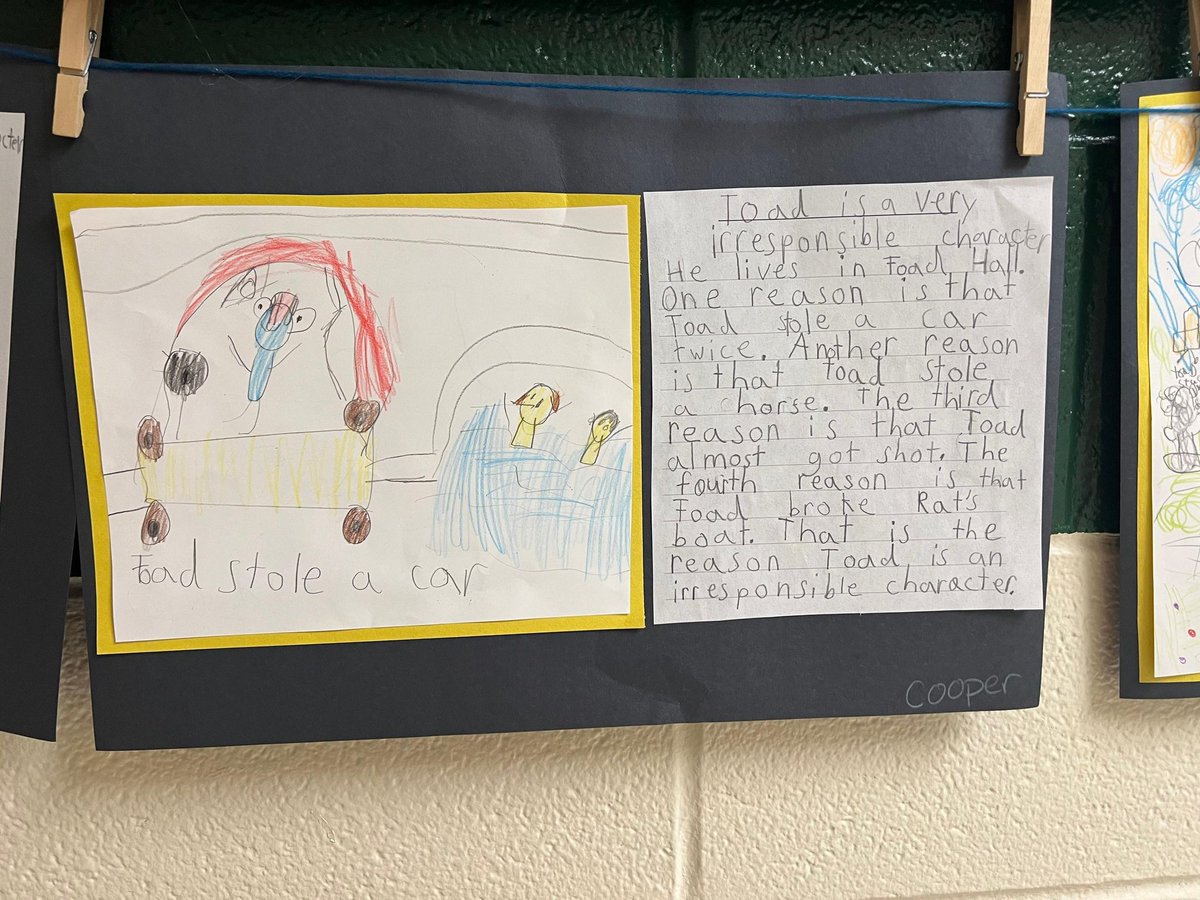 Toad stole a car
Toad is a very
irresponsible character
He lives in Toad Hall.
One reason is that
Toad stole a car
twice. Another reason
is that toad stole
a horse. The third
reason is that Toad
almost got shot. The
fourth reason is that
Toad broke Rat's
boat. That is the
reason Toad is an
irresponsible character.
Cooper